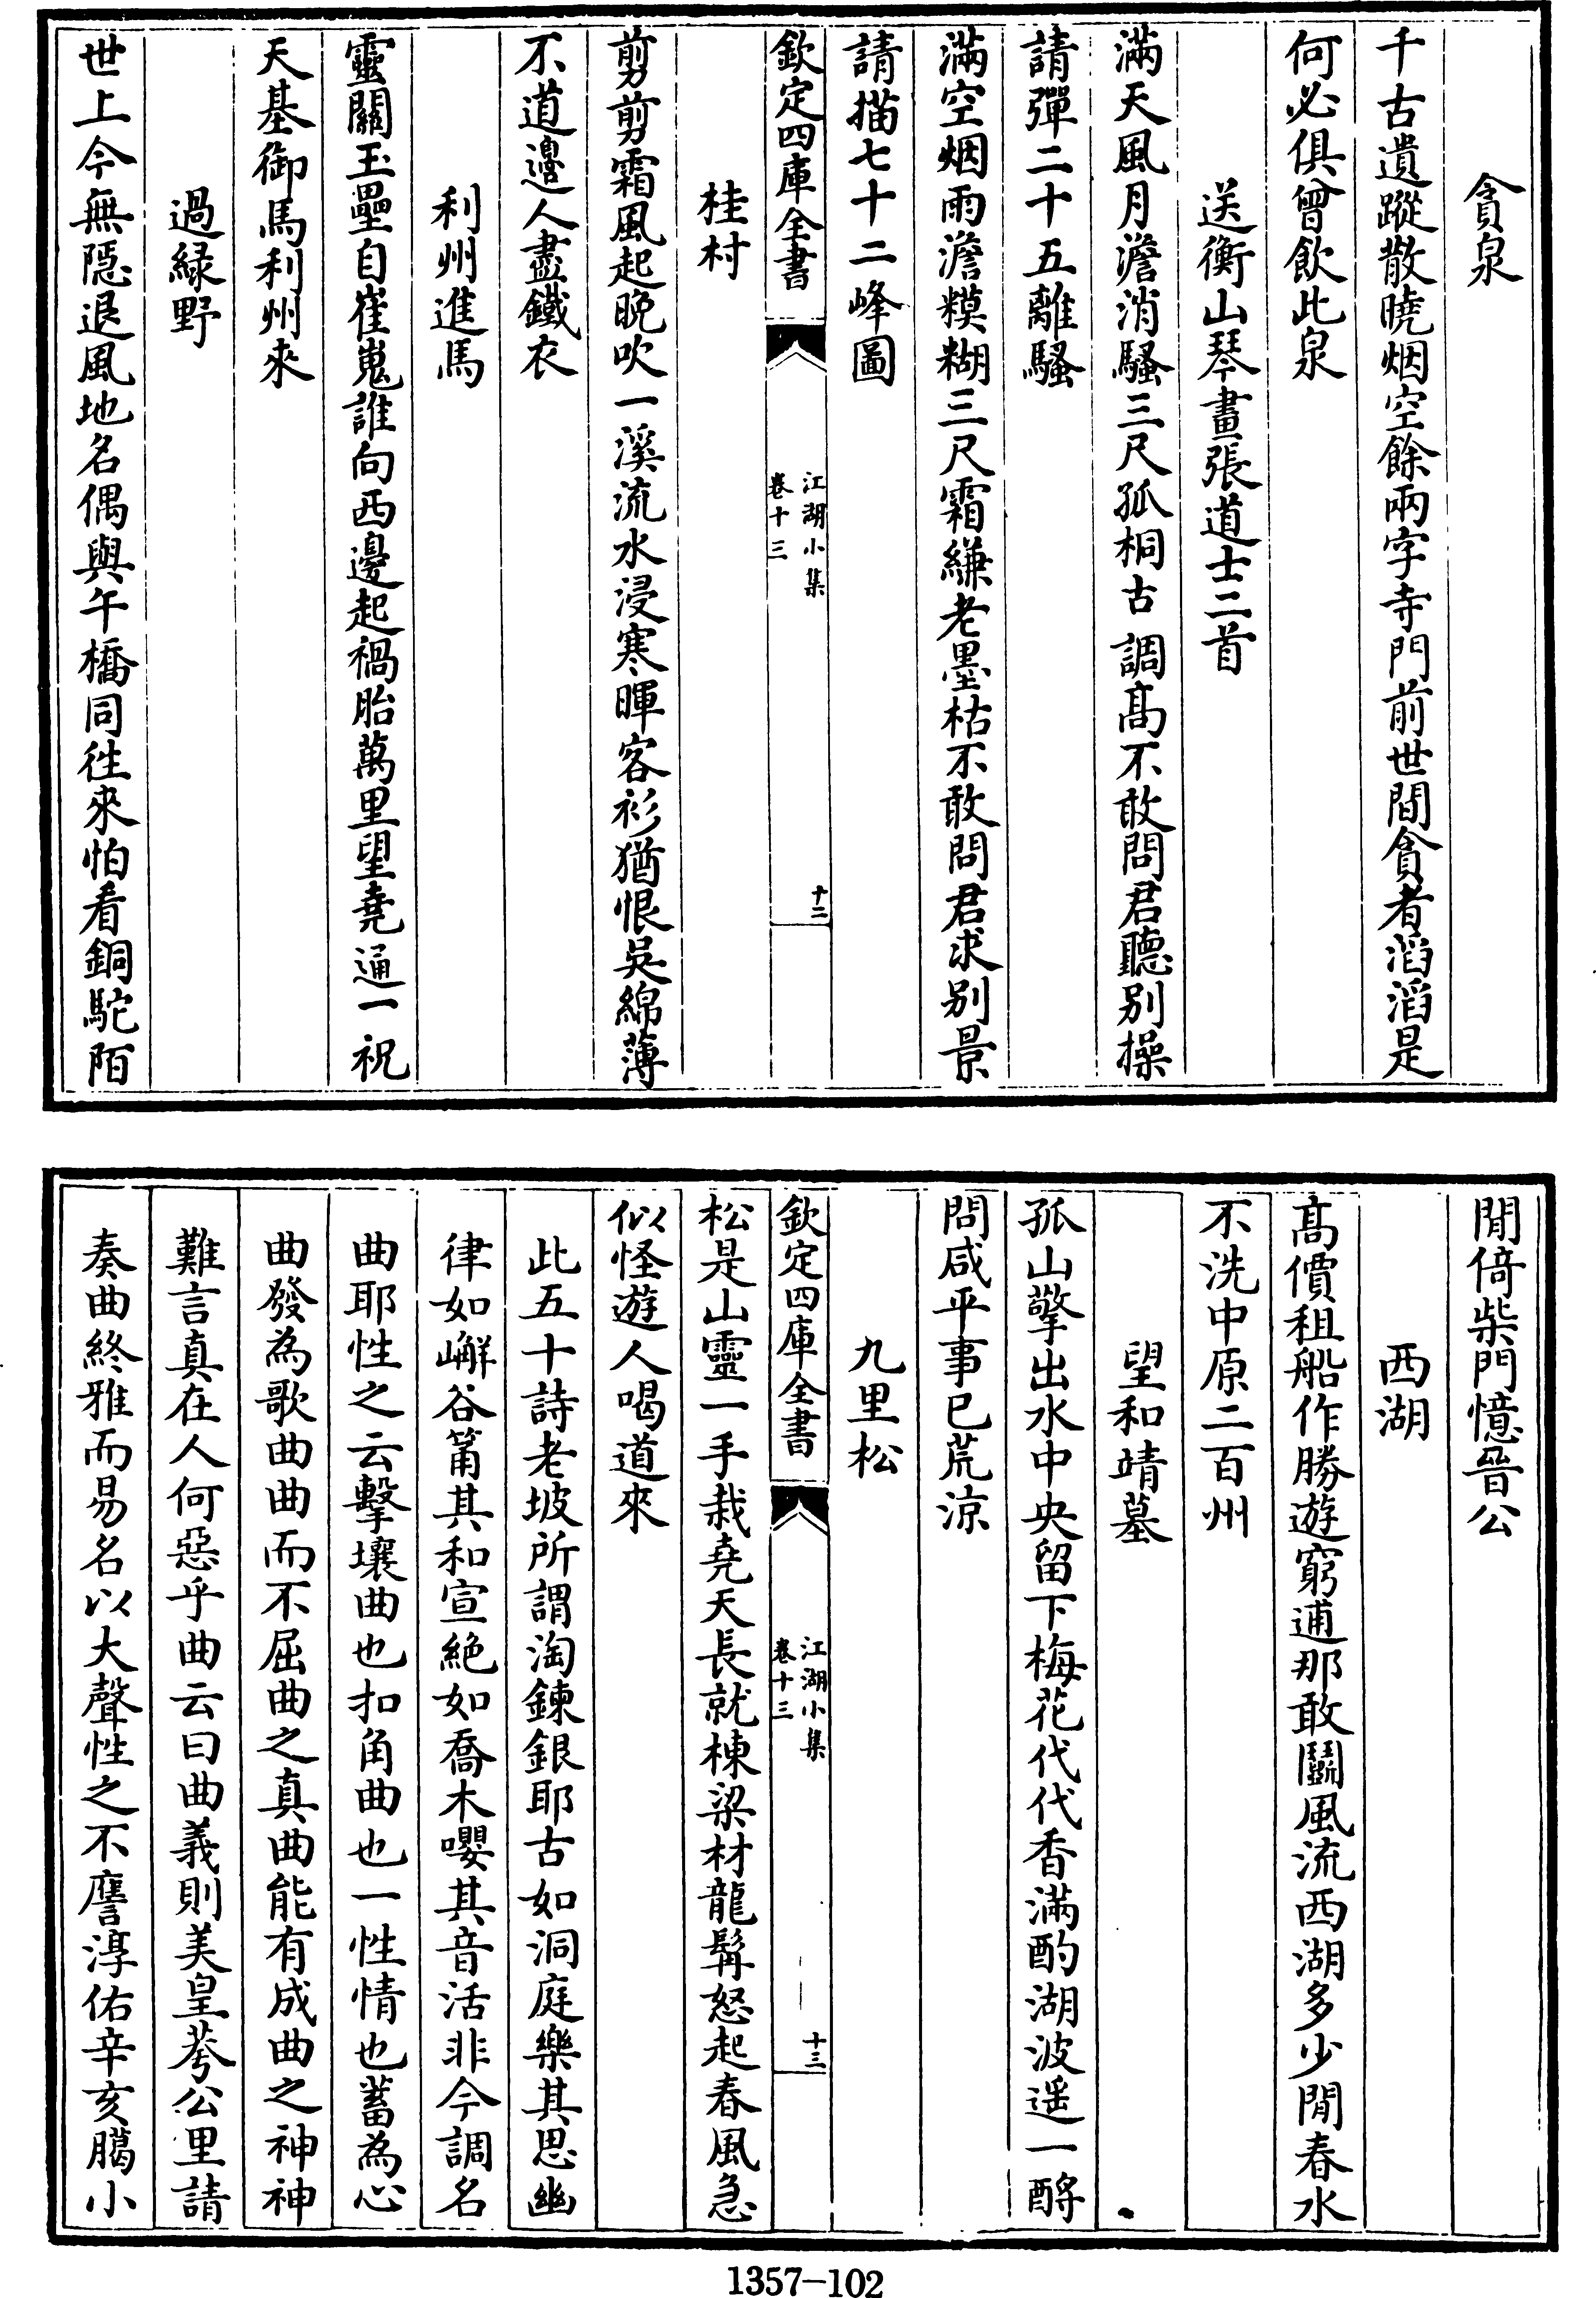 貪泉
千古遺蹤散曉烟空餘兩字寺門前世間貪者滔滔是
何必俱曾飲此泉
送衡山琴畫張道士二首
滿天風月澹消騷三尺孤桐古調髙不敢問君聽别操
請彈二十五離騷
滿空烟雨澹糢糊三尺霜縑老墨枯不敢問君求别景
請描七十二峰圖
欽定四庫全書
江湖小集
卷十三
十二
桂村
剪剪霜風起晚吹一溪流水浸寒暉客衫猶恨吳綿薄
不道邉人盡鐵衣
利州進馬
靈關玉壘自崔嵬誰向西邊起禍胎萬里望堯通一祝
天基御馬利州來
過緑野
世上今無隠退風地名偶與午橋同徃來怕看銅駝陌
閒倚柴門憶晉公
西湖
髙價租船作勝遊窮逋那敢鬬風流西湖多少閒春水
不洗中原二百州
望和靖墓
孤山擎出水中央留下梅花代代香滿酌湖波遥一酹
問咸平事已荒涼
九里松
欽定四庫全書
江湖小集
卷十三
十三
松是山靈一手栽堯天長就棟梁材龍髯怒起春風急
似怪遊人喝道來
此五十詩老坡所謂淘鍊銀耶古如洞庭樂其思幽
律如嶰谷筩其和宣絶如喬木嚶其音活非今調名
曲耶性之云擊壤曲也扣角曲也一性情也蓄為心
曲發為歌曲曲而不屈曲之真曲能有成曲之神神
難言真在人何惡乎曲云曰曲義則美皇荂公里請
奏曲終雅而易名以大聲性之不譍淳佑辛亥臈小
1357-102